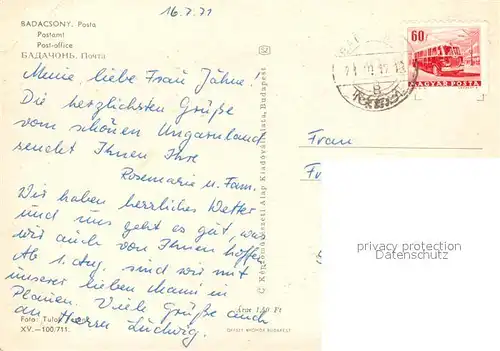 16.7.71
BADACSONY. Posta
Postamt
Post-office
БАДАЧОНЬ. Почта
60
MAGYAR POSTA
Meine liebe Frau Jähne.
Die herzlichsten Grüße
vom schönen Ungarnland
sendet Ihnen Ihre
Rosemarie u. Fam.
Wir haben herrliches Wetter
und uns geht es gut, was
wir auch von Ihnen hoffen.
Ab 1. Aug. sind wir mit
unserer lieben Mami in
Plauen. Viele Grüße auch
an Herrn Ludwig.
Foto: Tulok
XV.—100/711.
Ára: 1,50 Ft
OFFSET NYOMDA BUDAPEST
© Képzőművészeti Alap Kiadóvállalata, Budapest
Frau
privacy protection
Datenschutz